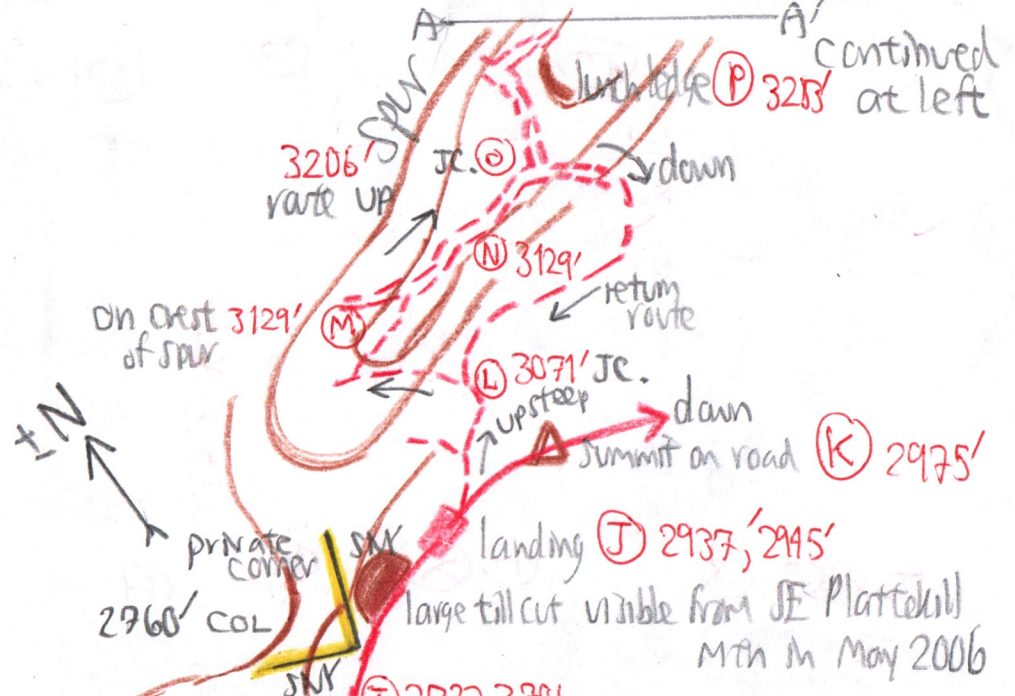 A A'
continued
at left
lunch ledge P 3253'
Spur
3206'
route up
JC. O
down
N 3129'
return
route
on crest 3129' M
of spur
L 3071' JC.
up steep
down
summit on road K 2975'
± N
private
corner
SNY
landing J 2937,' 2945'
2760' COL
large till cut visible from SE Plattekill
Mtn in May 2006
SNY